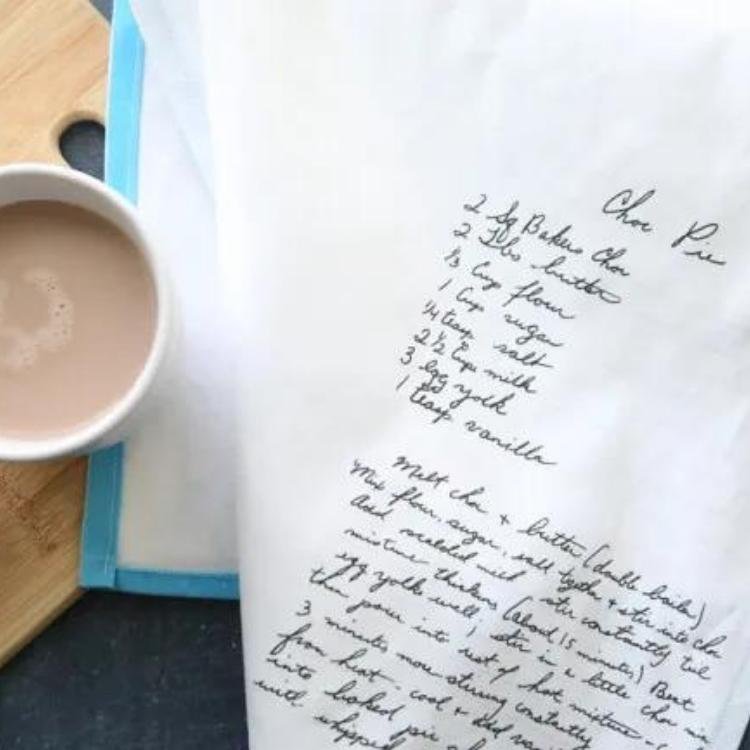 Choc Pie
2 Sq Bakers Choc
2 Tbs butter
1/3 Cup flour
1 Cup sugar
1/4 teasp salt
2 1/2 Cup milk
3 egg yolk
1 teasp vanilla
Melt choc + butter (double boiler)
Mix flour, sugar, salt together + stir into choc
Add scalded milk stir constantly til
mixture thickens (about 15 minutes) Beat
egg yolks well, stir in a little choc mix
then pour into rest of hot mixture
3 minutes more stirring constantly
from heat - cool + add
into baked pie
with whipped